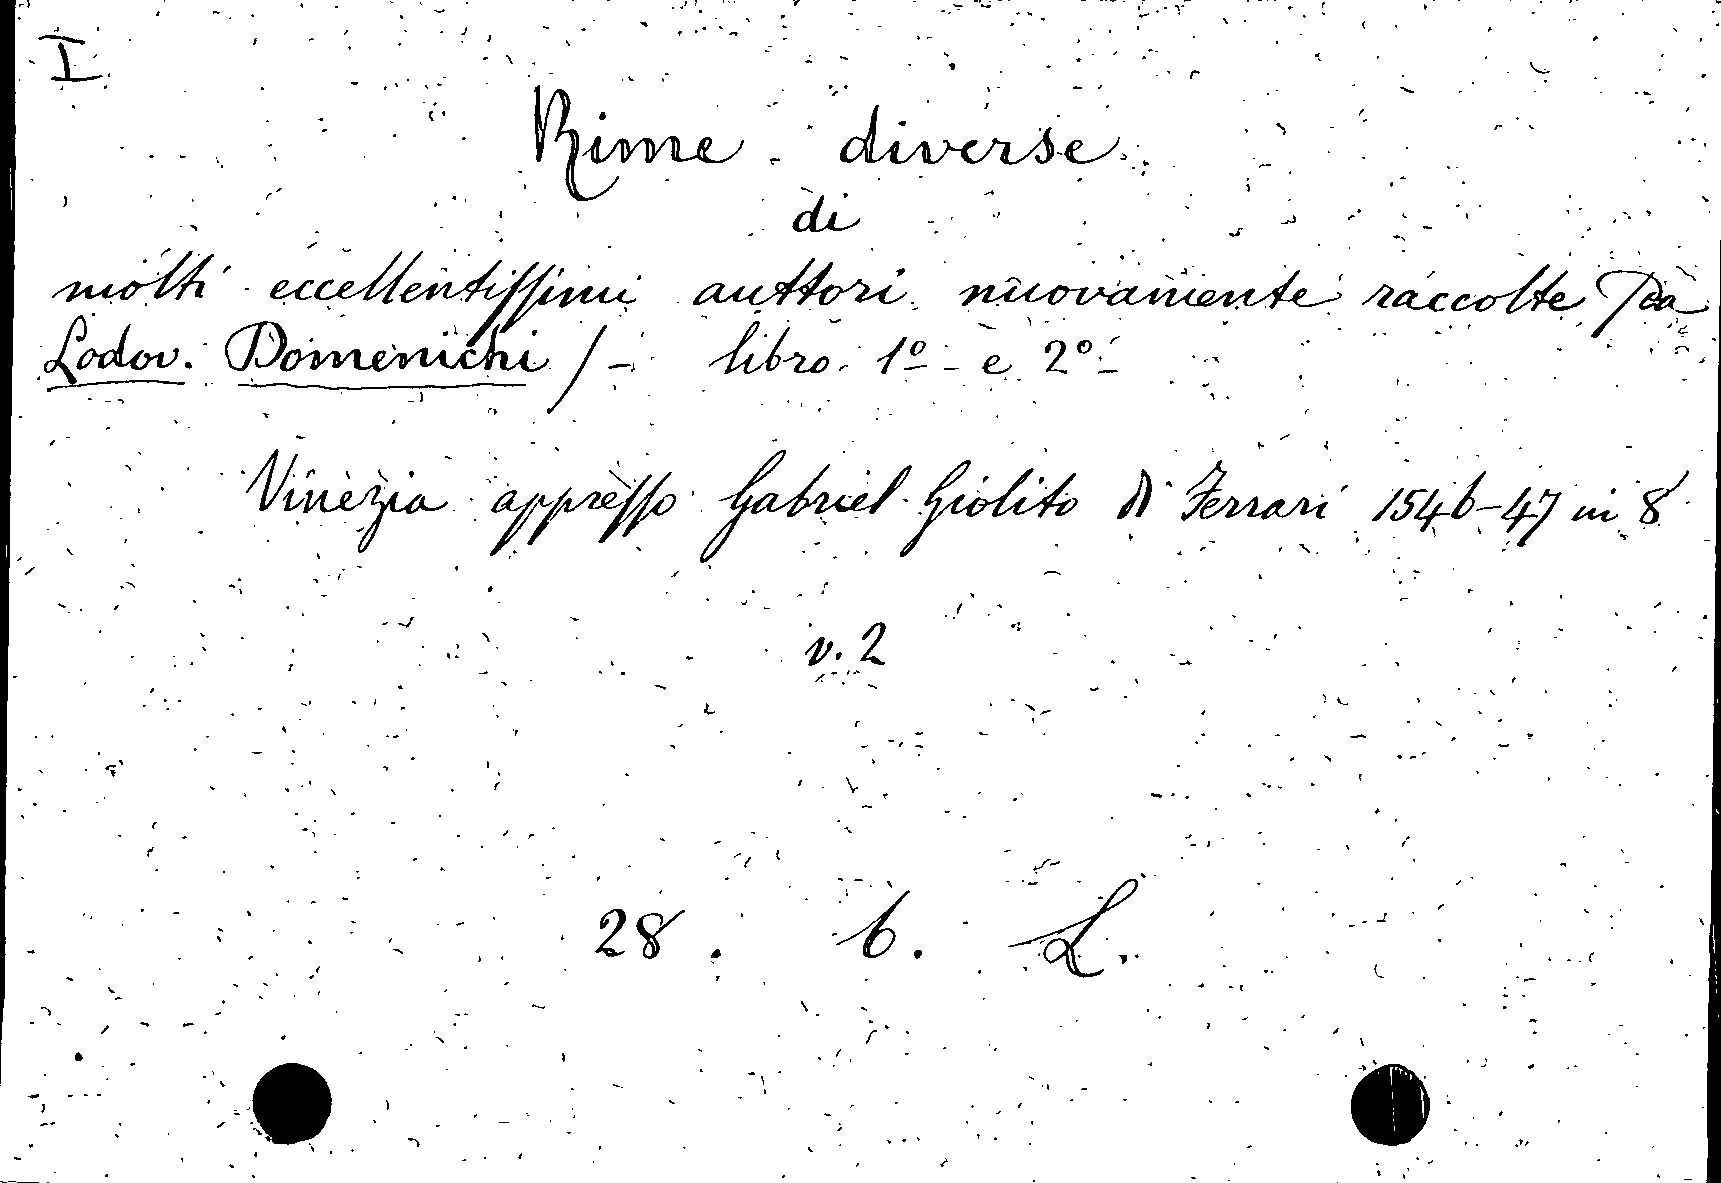 I
Rime diverse
di
molti eccellentissimi auttori nuovamente raccolte [da
Lodov. Domenichi /- libro 1º - e 2º -
Vinezia appresso Gabriel Giolito di Ferrari 1546-47 in 8
v. 2
28. 6. L.